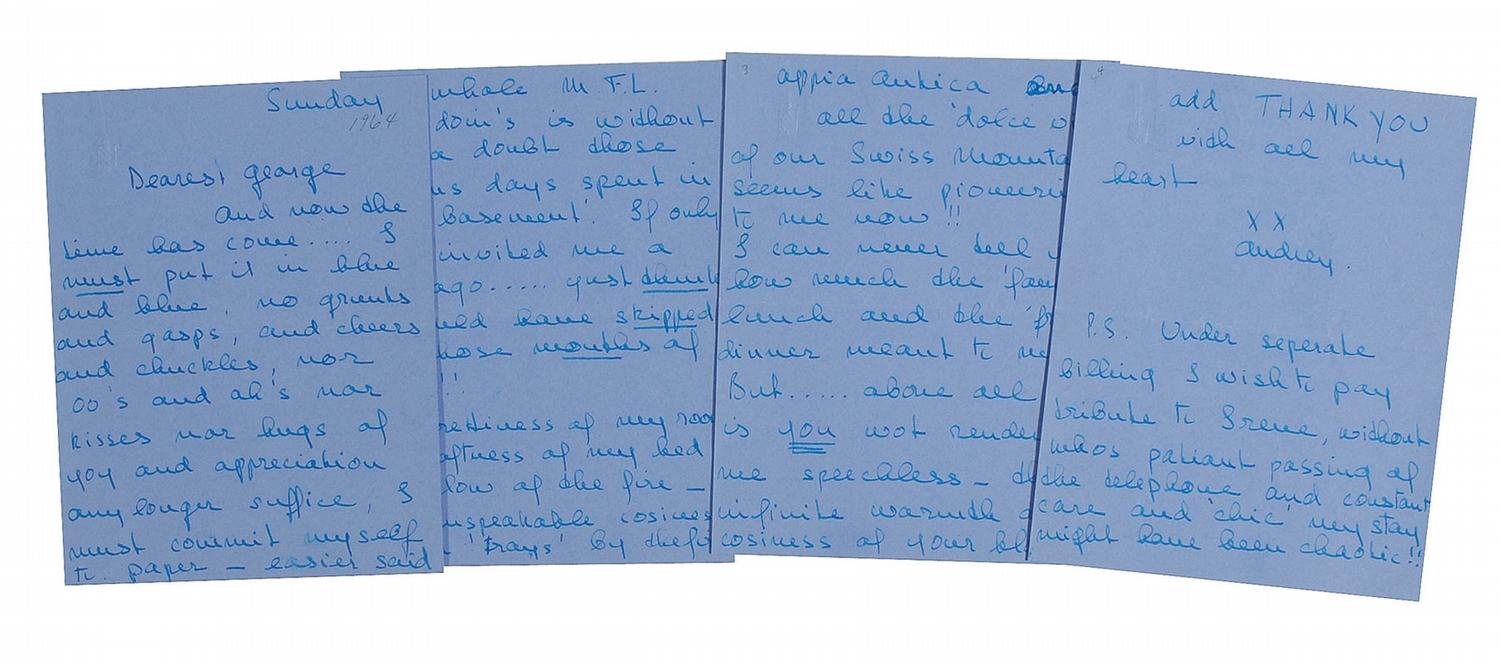 Sunday
1964
Dearest george
and now the
time has come.... I
must put it in blue
and blue, no grunts
and gasps, and cheers
and chuckles, nor
oo's and ah's nor
kisses nor hugs of
yoy and appreciation
any longer suffice, I
must commit myself
to paper – easier said
whole M.F.L.
doin's is without
a doubt those
us days spent in
basement'. If only
invited me a
ago..... gust think
uld have skipped
hose months of
!!
restiness of my roo
oftness of my bed
low of the fire –
nspeakable cosines
'trays' by the fi
3
appia antica and
all the 'dolce v
of our Swiss Mounta
seems like pioneeri
to me now !!
I can never tell
how much the 'fam
lunch and the 'fr
dinner meant to me
But..... above all
is you wot render
me speechless – th
infinite warmth
cosiness of your bl
4
add THANK YOU
with all my
heart
X X
audrey.
P.S. Under seperate
billing I wish to pay
tribute to Irene, without
whos patiant passing of
the telephone and constant
care and 'chic' my stay
might have been chaotic!!